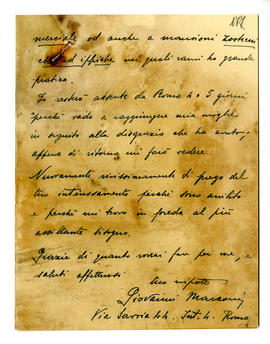 merciale od anche a mansioni zootecni
che ed ippiche nei quali rami ho grande
pratica.
Io resterò assente da Roma 4 o 5 giorni
perché vado a raggiungere mia moglie
in seguito alla disgrazia che ha avuto,
appena di ritorno mi farò vedere.
Nuovamente vivissimamente ti prego del
tuo interessamento perché sono avvilito
e perché mi trovo in preda al più
assillante bisogno.
Grazie di quanto vorrai far per me, e
saluti affettuosi
tuo nipote
Giovanni Marconi
Via Savoia 44. Int. 4. Roma